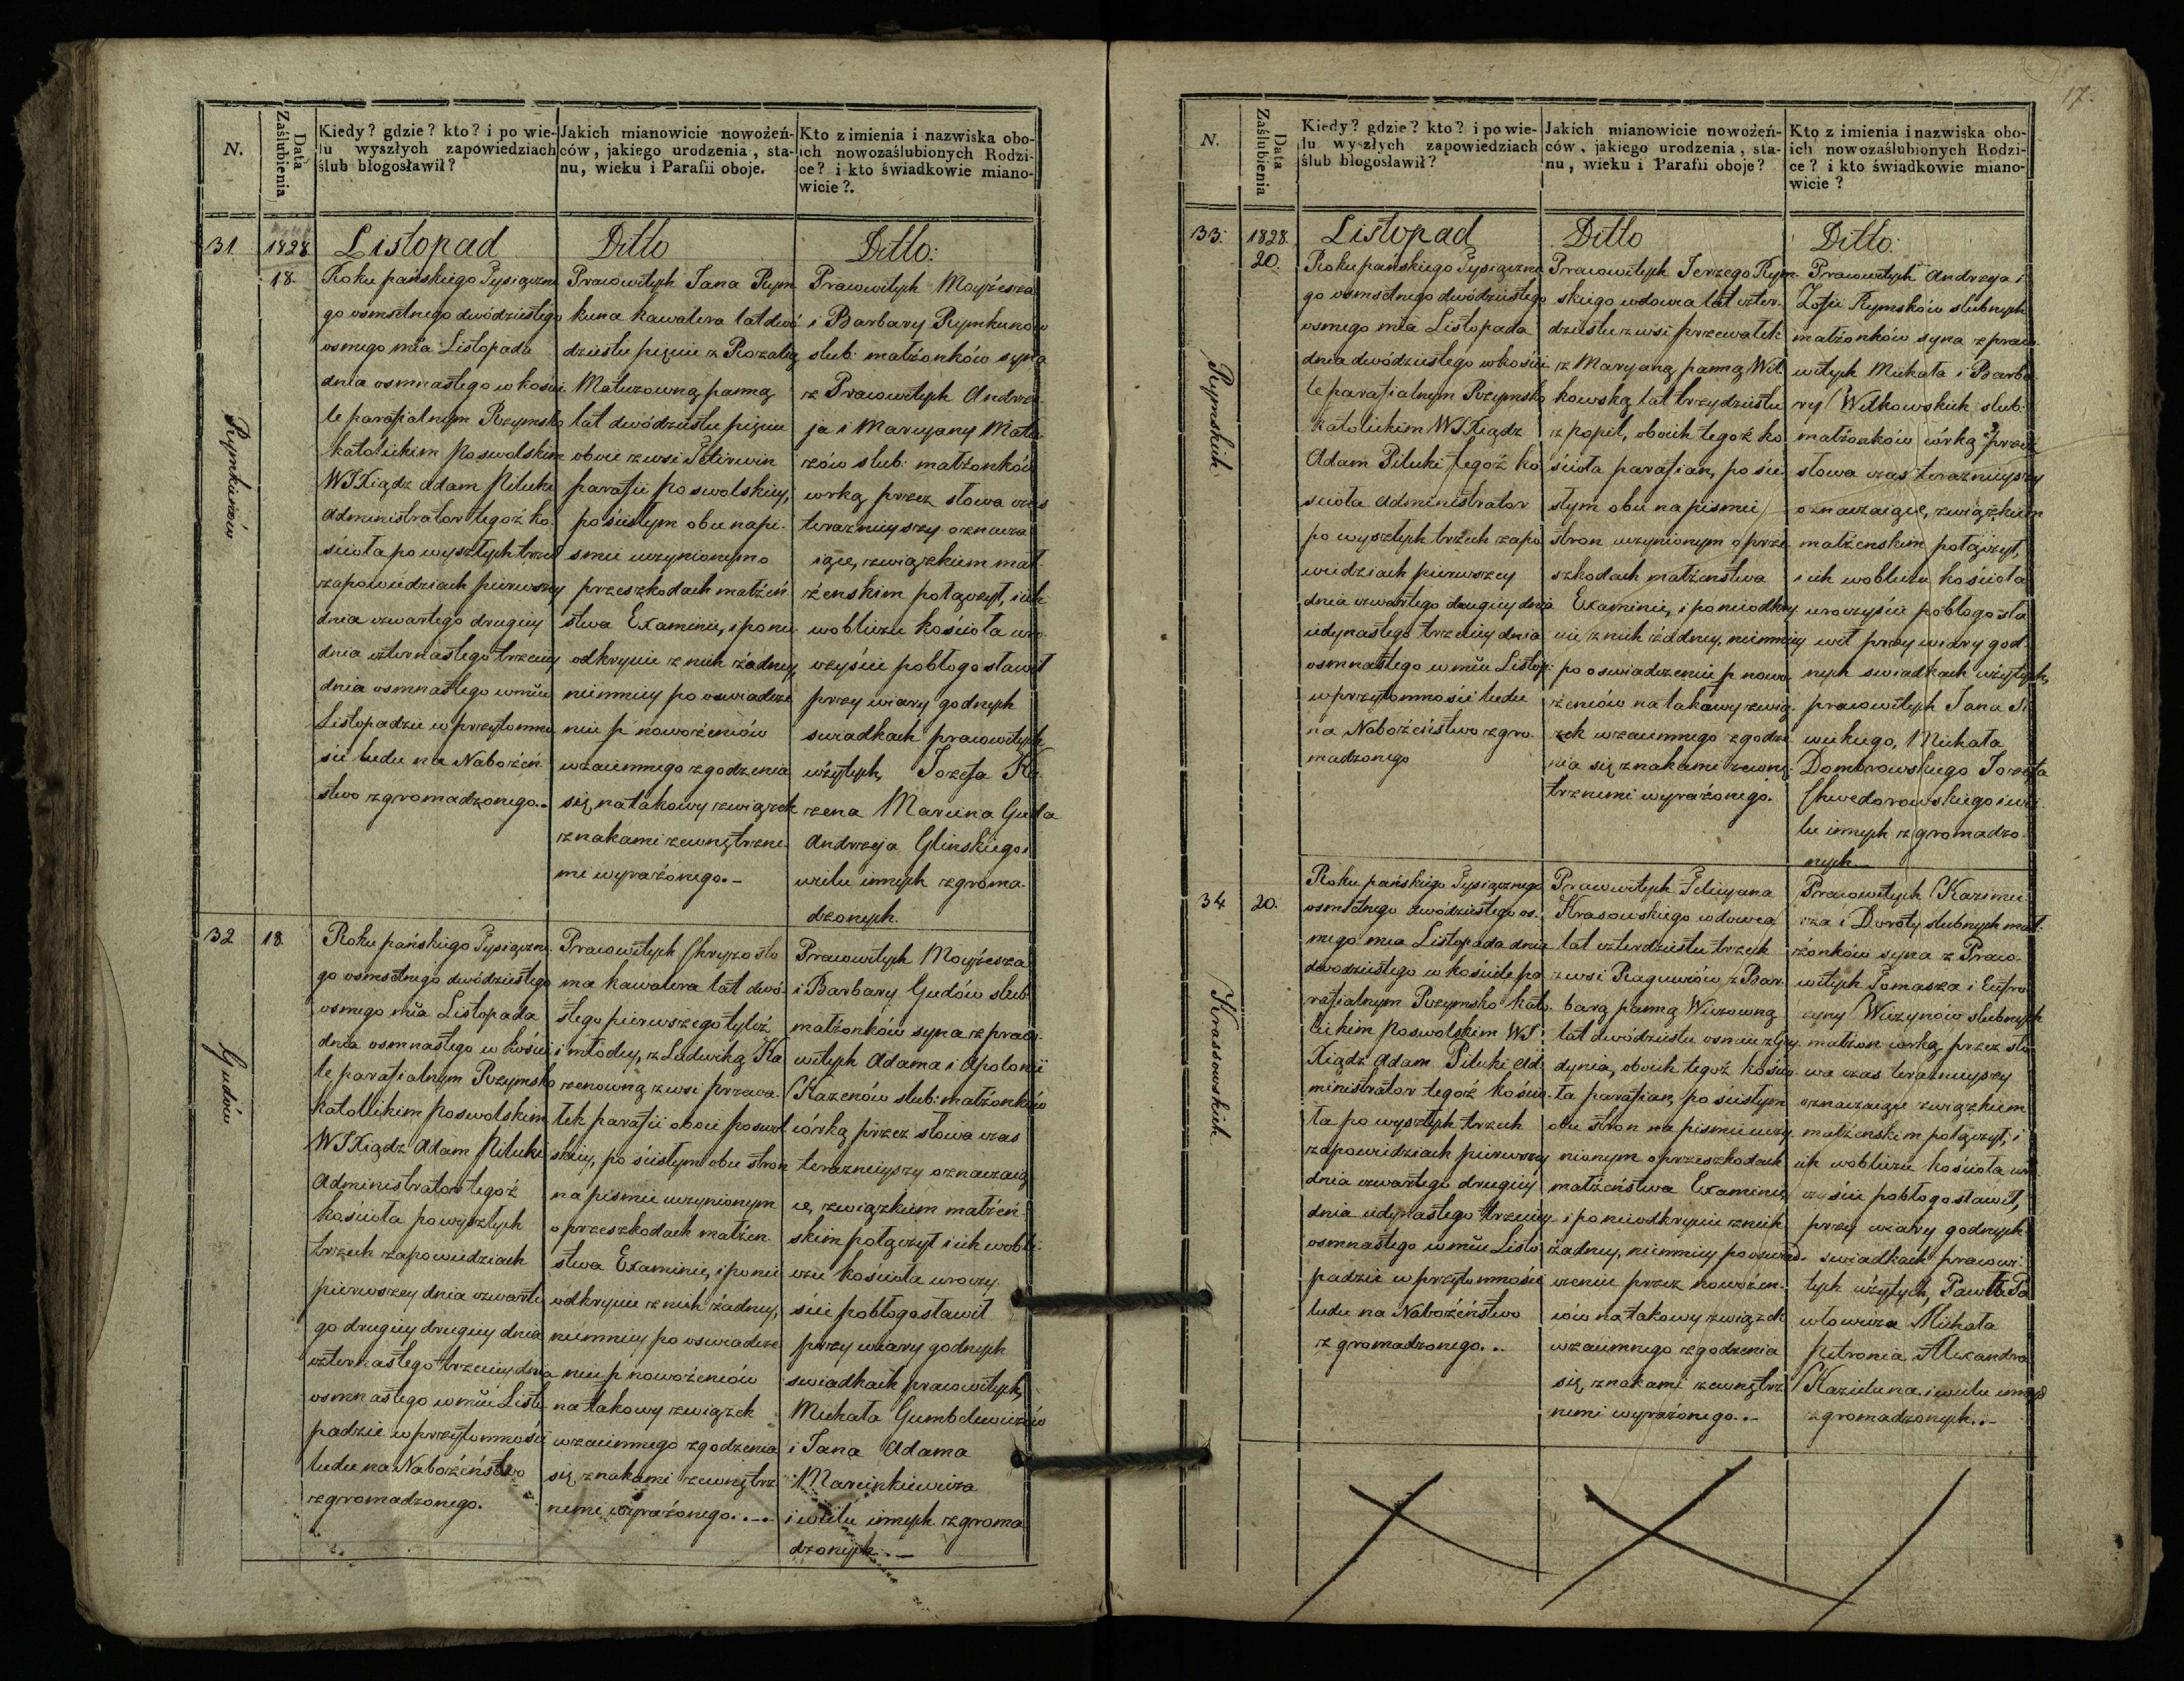 N.
Data
Zaślubienia
Kiedy? gdzie? kto? i po wie-
lu wyszłych zapowiedziach
ślub błogosławił?
Jakich mianowicie nowożeń-
ców, jakiego urodzenia, sta-
nu, wieku i Parafii oboje.
Kto z imienia i nazwiska obo-
ich nowozaślubionych Rodzi-
ce? i kto świadkowie miano-
wicie?.
31
1828
18.
Rymkunów
Listopad
Roku pańskiego Tysiączne
go osmsetnego dwódziestego
osmego mca Listopada
dnia osmnastego w kości
le parafialnym Rzymsko
katolickim Poswolskim
WJXiądz Adam Pilecki
Administrator tegoż ko
ścioła po wyszłych trzech
zapowiedziach pierwszey
dnia czwartego drugiey
dnia czternastego trzeciey
dnia osmnastego w mcu
Listopadzie w przytomno
ści ludu na Nabożeń
stwo zgromadzonego.-
Ditto
Pracowitych Jana Rym
kuna kawalera lat dwó
dziestu pięciu z Rozalią
Matuzowną panną
lat dwódziestu pięciu
oboie z wsi
parafii Poswolskiey,
po ścisłym obu na pi-
smie uczynionym o
przeszkodach małżeń
stwa Examinie, i po nie
odkryciu z nich żadney,
niemniey po oswiadcze
niu p nowożeńców
wzaiemnego zgodzenia
się na takowy związek
znakami zewnętrzne
mi wyrażonego.-
Ditto:
Pracowitych Moyżesza
i Barbary Rymkunów
slub: małżonków syna
z Pracowitych Andrze
ja i Maryany Matu
zów slub: małżonków
corką przez słowa czas
teraznieyszy oznacza
iące, związkiem mał
żenskim połączył, i ich
w obliczu kościoła uro
czyście pobłogosławił
przy wiary godnych
swiadkach pracowitych
użytych, Jozefa Ka
zena Marcina Guda
Andrzeja Glinskiego i
wielu innych zgroma
dzonych.
32
18
Gudów
Roku pańskiego Tysiączne
go osmsetnego dwódziestego
osmego mca Listopada
dnia osmnastego w kości
le parafialnym Rzymsko
katolickim Poswolskim
WJXiądz Adam Pilecki
Administrator tegoż
kościoła po wyszłych
trzech zapowiedziach
pierwszey dnia czwarte
go drugiey drugiey dnia
czternastego trzeciey dnia
osmnastego w mcu Listo
padzie w przytomności
ludu na Nabożeństwo
zgromadzonego.
Pracowitych Chryzosto
ma kawalera lat dwó
stego pierwszego tyloż
i młodey, z Ludwiką Ka
zenowną z wsi przewa
łek parafii oboie poswol
skiey, po ścisłym obu stron
na pismie uczynionym
o przeszkodach małżen
stwa Examinie, i po nie
odkryciu z nich żadney,
niemniey po oswiadcze
niu p nowożeńców
na takowy związek
wzaiemnego zgodzenia
się znakami zewnętrz
nemi wyrażonego..-.
Pracowitych Moyżesza
i Barbary Gudów slub
małżonków syna z praco
witych Adama i Apolonii
Kazenów slub: małżonków
córką przez słowa czas
teraznieyszy oznaczaią
ce, związkiem małżeń
skim połączył i ich w obli
czu kościoła uroczy
ście pobłogosławił
przy wiary godnych
swiadkach pracowitych,
Michała Gumbelewiczów
i Jana Adama
Marcinkiewicza
i wielu innych zgroma
dzonych.-
17.
N.
Data
Zaślubienia
Kiedy? gdzie? kto? i po wie-
lu wyszłych zapowiedziach
ślub błogosławił?
Jakich mianowicie nowożeń-
ców, jakiego urodzenia, sta-
nu, wieku i Parafii oboje?
Kto z imienia i nazwiska obo-
ich nowozaślubionych Rodzi-
ce? i kto świadkowie miano-
wicie?
33.
1828.
20.
Rymskich
Listopad
Roku pańskiego Tysiączne
go osmsetnego dwódziestego
osmego mca Listopada
dnia dwódziestego w kości
le parafialnym Rzymsko
katolickim WJXiądz
Adam Pilecki tegoż ko
scioła Administrator
po wyszłych trzech zapo
wiedziach pierwszey
dnia czwartego drugiey dnia
iedynastego trzeciey dnia
osmnastego w mcu Listop:
w przytomności ludu
na Nabożeństwo zgro-
madzonego
Ditto
Pracowitych Jerzego Rym
skiego wdowca lat czter-
dziestu z wsi przewałek
z Maryaną panną Wit
kowską lat trzydziestu
z popiel, oboich tegoż ko
ścioła parafian, po ści
słym obu na pismie
stron uczynionym o prze
szkodach małżenstwa
Examinie, i po nieodkry
ciu z nich żadney, niemniey
po oswiadczeniu p nowo
żeńców na takowy związ-
zek wzaiemnego zgodze
nia się znakami zewnę
trznemi wyrażonego.
Ditto:
Pracowitych Andrzeja i
Zofii Rymsków slubnych
małżonków syna z praco
witych Michała i Barba
ry Witkowskich slub:
małżonków córką przez
słowa czas teraznieyszy
oznaczaiące, związkiem
małżenskim połączył,
i ich w obliczu kościoła
uroczyście pobłogosła
wił przy wiary god
nych swiadkach użytych,
pracowitych Jana Si
wickiego, Michała
Dombrowskiego Jozefa
Chwedorowskiego i wie
lu innych zgromadzo
nych
34
20.
Krassowskich
Roku pańskiego Tysiącznego
osmsetnego dwódziestego os-
mego mca Listopada dnia
dwodziestego w kościele pa
rafialnym Rzymsko kato
lickim Poswolskim WJ
Xiądz Adam Pilecki Ad
ministrator tegoż kościo
ła po wyszłych trzech
zapowiedziach pierwszey
dnia czwartego drugiey
dnia iedynastego trzeciey
osmnastego w mcu Listo
padzie w przytomności
ludu na Nabożeństwo
zgromadzonego...
Pracowitych Felicyana
Krasowskiego wdowca
lat czterdziestu trzech
z wsi Raguwiów z Bar
barą panną Wiczowną
lat dwódziestu osmiu z
dynia, oboich tegoż kościo
ła parafian, po ścisłym
obu stron na pismie uczy
nionym o przeszkodach
małżeństwa Examinie,
i po nieodkryciu z nich
żadney, niemniey po oswiad
czeniu przez nowożeń-
ców na takowy związek
wzaiemnego zgodzenia
się znakami zewnętrz
nemi wyrażonego..-
Pracowitych Kazimie
rza i Doroty slubnych mał
żonków syna z Praco-
witych Tomasza i Eufro
zyny Wiczynów slubnych
małżon: corką przez sło
wa czas teraznieyszy
oznaczaiące związkiem
małżenskim połączył, i
ich w obliczu kościoła uro
czyście pobłogosławił,
przy wiary godnych
swiadkach pracowi
tych użytych, Pawła Pa
włowicza Michała
Petronia, Alexandra
Kazieluna i wielu innych
zgromadzonych..-